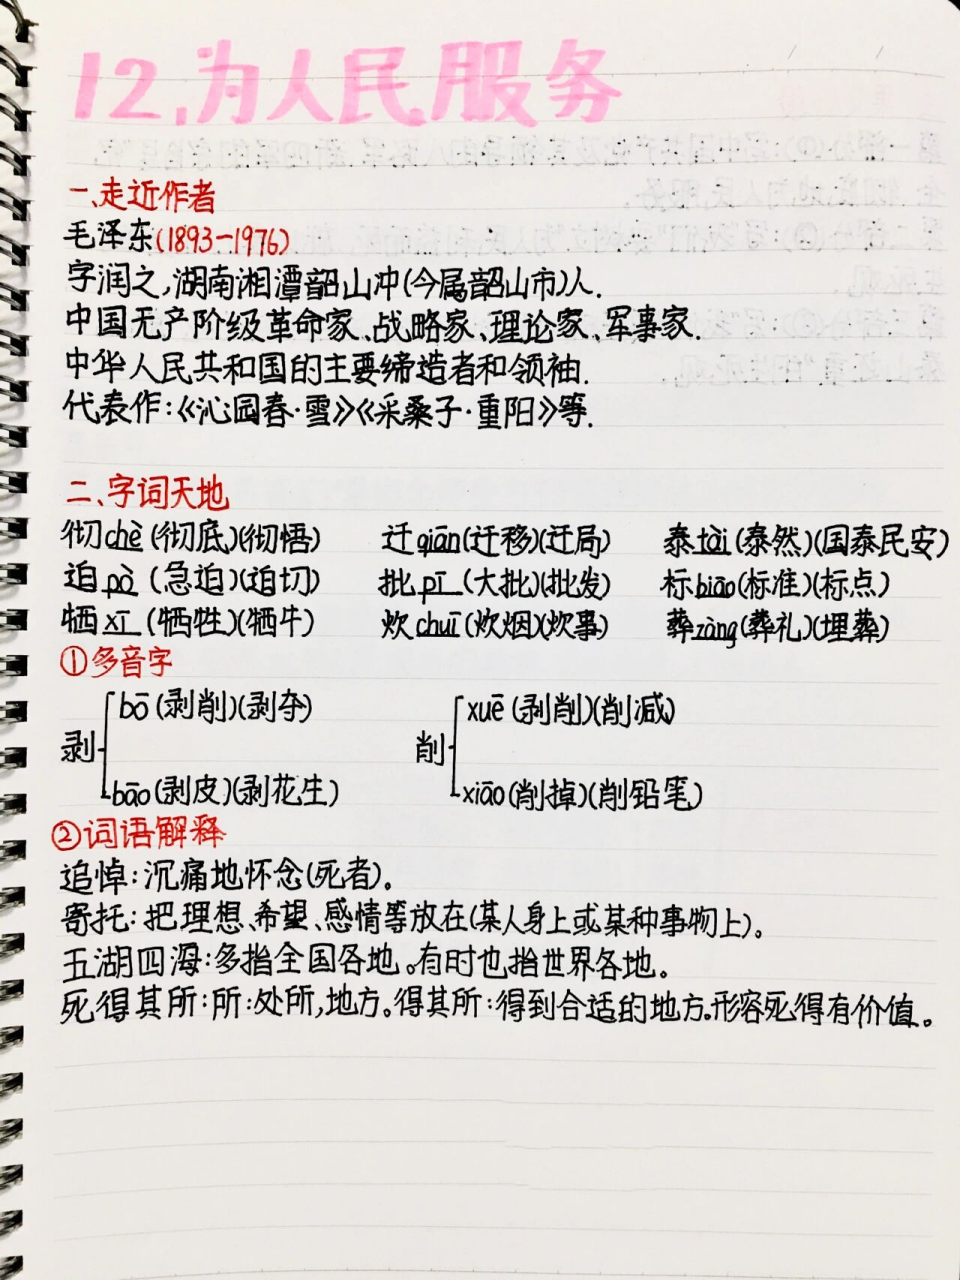 12、为人民服务
一、走近作者
毛泽东(1893-1976)
字润之,湖南湘潭韶山冲(今属韶山市)人.
中国无产阶级革命家、战略家、理论家、军事家.
中华人民共和国的主要缔造者和领袖.
代表作:《沁园春·雪》《采桑子·重阳》等.
二、字词天地
彻chè(彻底)(彻悟) 迁qiān(迁移)(迁局) 泰tài(泰然)(国泰民安)
迫pò(急迫)(迫切) 批pī(大批)(批发) 标biāo(标准)(标点)
牺xī(牺牲)(牺牛) 炊chuī(炊烟)(炊事) 葬zàng(葬礼)(埋葬)
①多音字
bō(剥削)(剥夺) xuē(剥削)(削减)
剥 削
bāo(剥皮)(剥花生) xiāo(削掉)(削铅笔)
②词语解释
追悼:沉痛地怀念(死者)。
寄托:把理想、希望、感情等放在(某人身上或某种事物上)。
五湖四海:多指全国各地。有时也指世界各地。
死得其所:所:处所,地方。得其所:得到合适的地方.形容死得有价值。